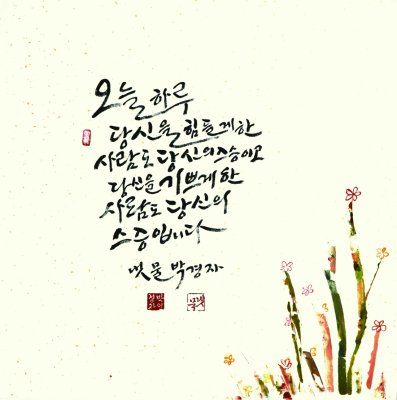 오늘하루
당신을 힘들게한
사람도 당신의 스승이고
당신을 기쁘게 한
사람도 당신의
스승입니다
박경자